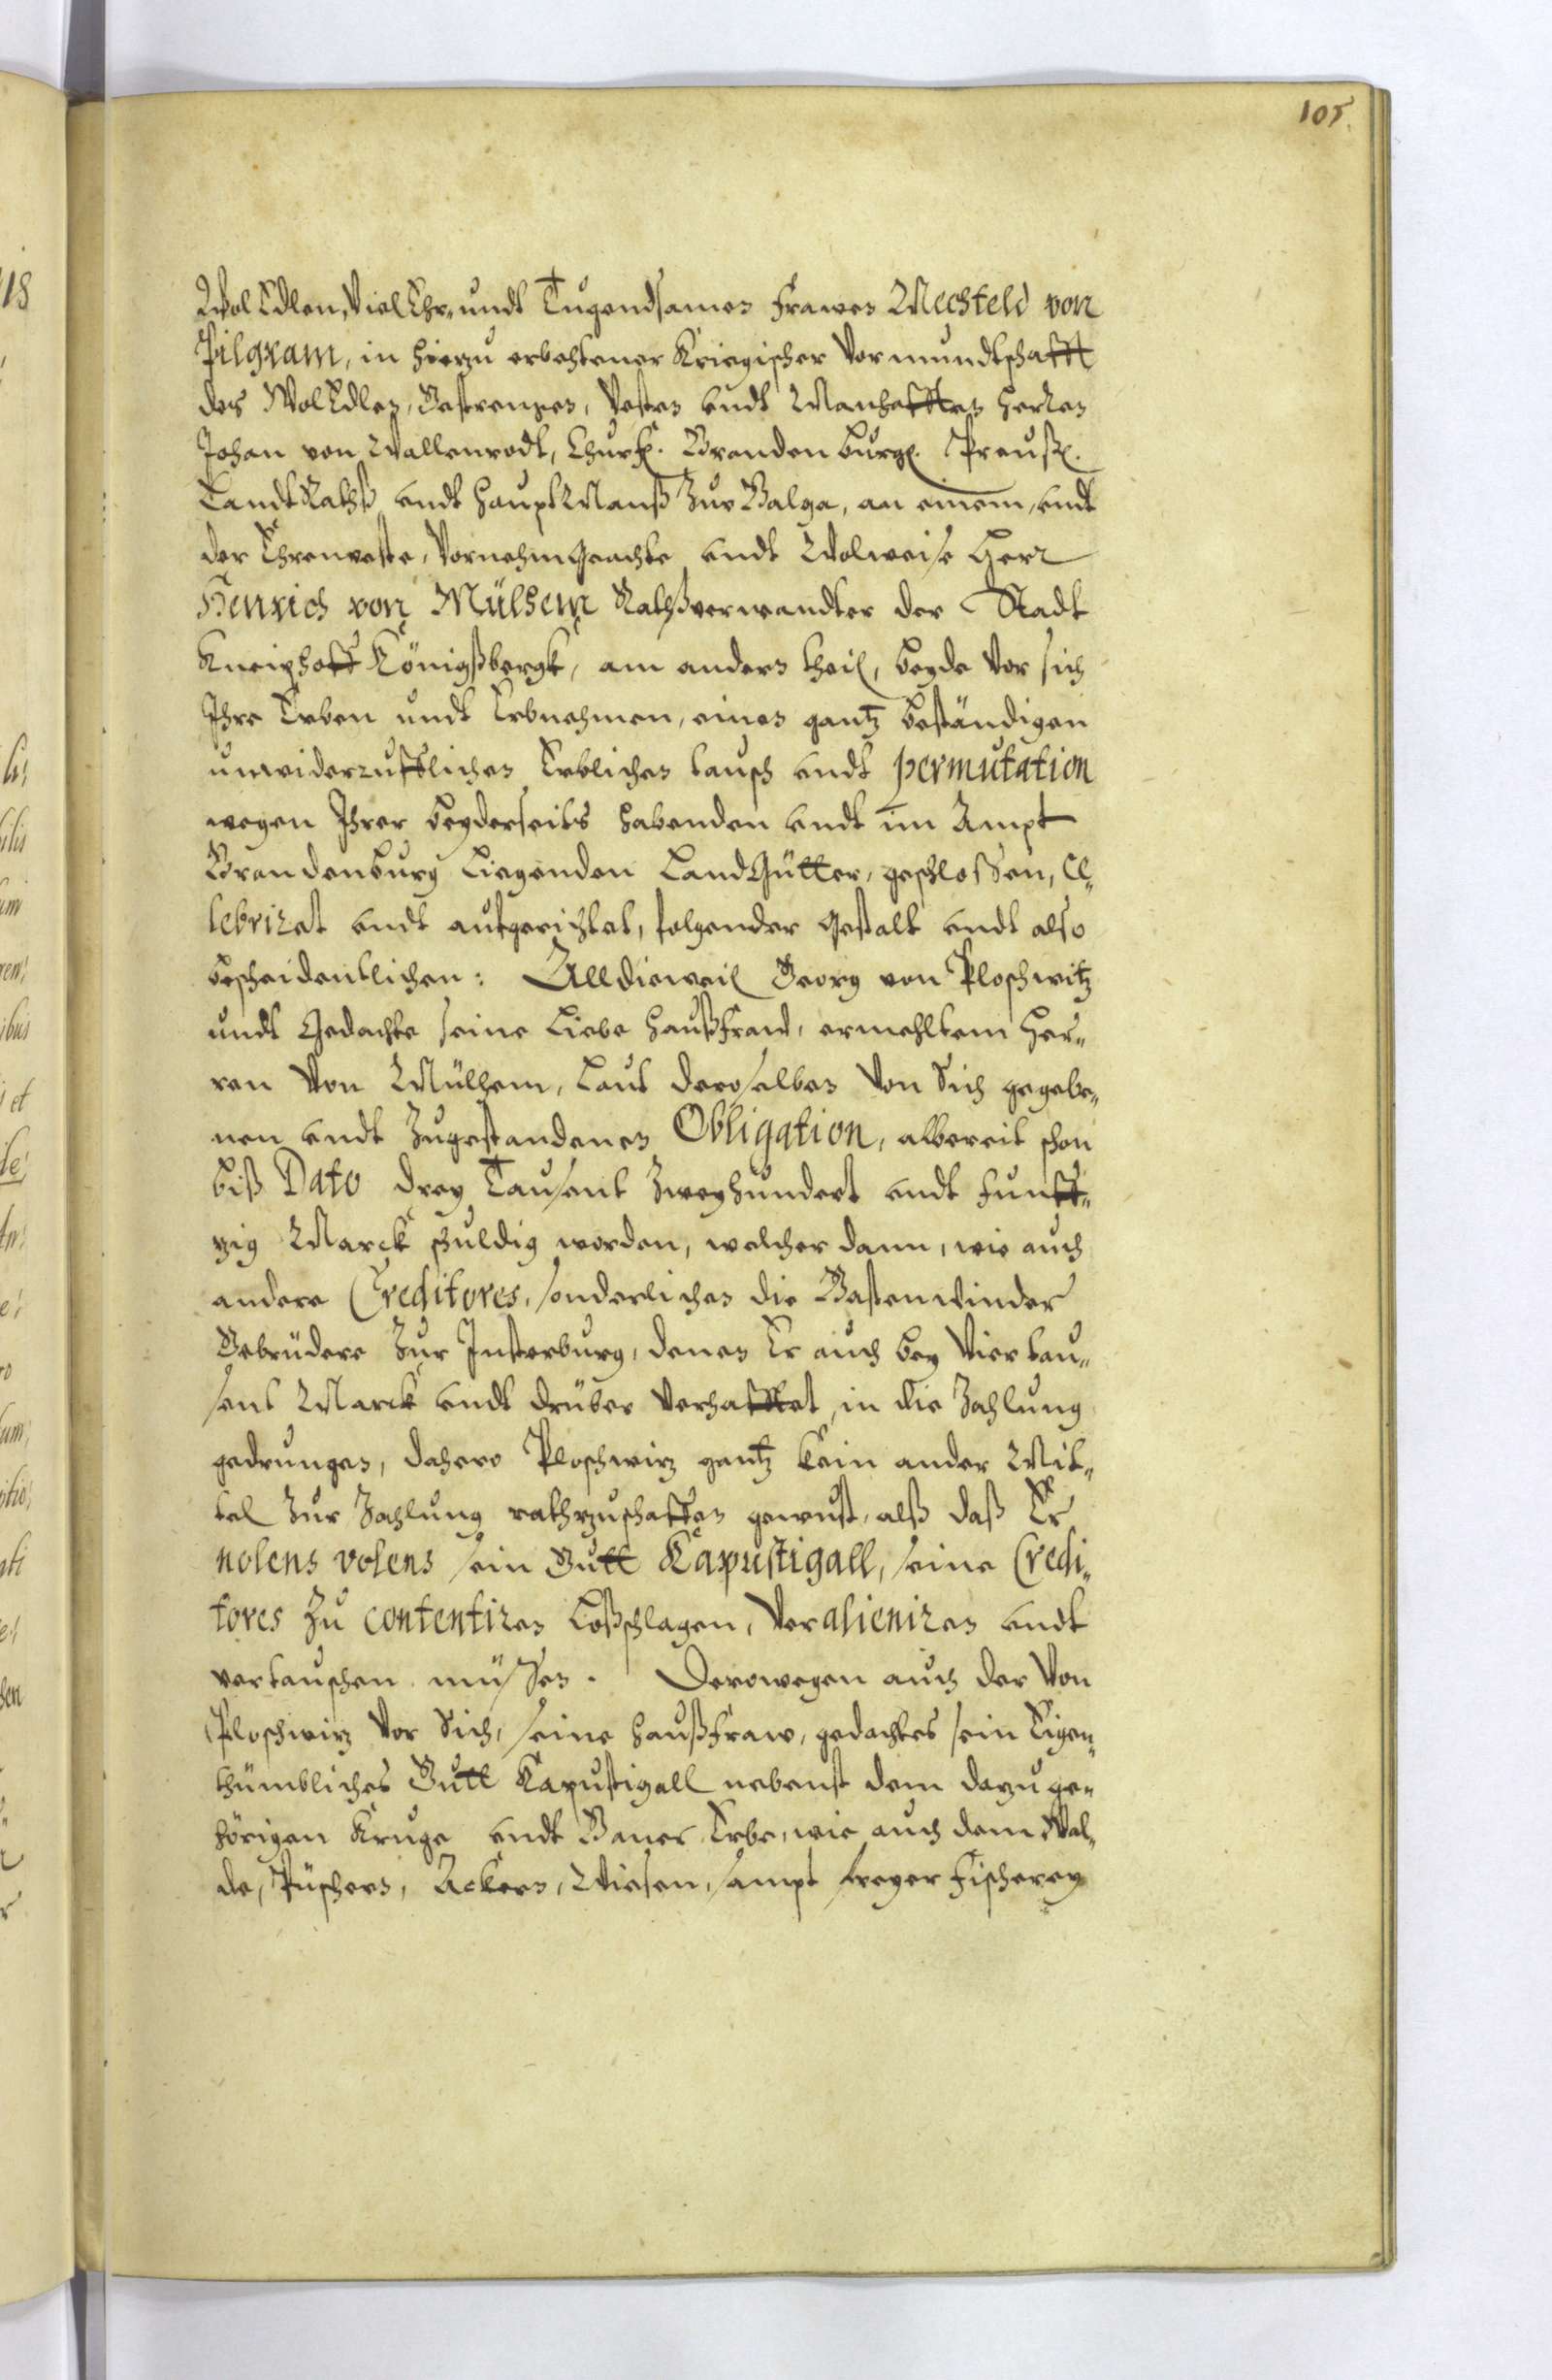 105.
WolEdlen, Viel Ehr- undt Tugendsamen Frawen Mechteld von
Pilgram, in hierzu erbehtener Kriegischer Vormundtschafft
des WolEdlen, Gestrengen, Vesten undt Manhafften Herren
Johan von Wallenrodt, Churf. Brandenburg. Preuß.
LandtRahtß undt HauptManß Zur Balga, an einem, undt
der Ehrenveste, VornehmGeachte undt Wolweise Herr
Henrich von Mülhem Rahtßverwandter der Stadt
Kneiphoff Königßbergk, am andern theil, beyde vor sich
Ihre Erben undt Erbnehmen, einen gantz beständigen
unwiderrufflichen Erblichen tausch undt permutation
wegen Ihrer beyderseits habenden undt im Ampt
Brandenburg Liegenden LandGütter, geschlossen, Ce-
lebriret undt aufgerichtet, folgender gestalt undt also
bescheidentlichen: Alldieweil Georg von Ploschwitz
undt Gedachte seine Liebe Haußfraw, ermehltem Her-
ren Von Mülhem, Laut deroselben Von Sich gegebe-
nen undt Zugestandenen Obligation, albereit schon
biß Dato drey Tausent Zweyhundert undt Funff-
zig Marck schuldig worden, welcher dann, wie auch
andere Creditores, sonderlichen die Bastenwinder
Gebrüdere Zur Insterburg, denen Er auch bey Viertau-
sent Marck undt drüber Verhafftet, in die Zahlung
gedrungen, dahero Ploschwitz gantz kein ander Mit-
tel Zur Zahlung rahtzuschaffen gewust, alß daß Er
nolens volens sein Gutt Kapustigall, seine Credi-
tores Zu contentiren Loßschlagen, Veralieniren undt
vertauschen müssen. Derowegen auch der Von
Ploschwitz Vor Sich, seine Haußfraw, gedachtes sein Eigen-
thümbliches Gutt Kapustigall nebenst dem dazu ge-
hörigen Kruge undt Bauer Erbe, wie auch dem Wal-
de, Püschern, Ackern, Wiesen, sampt freyer Fischerey